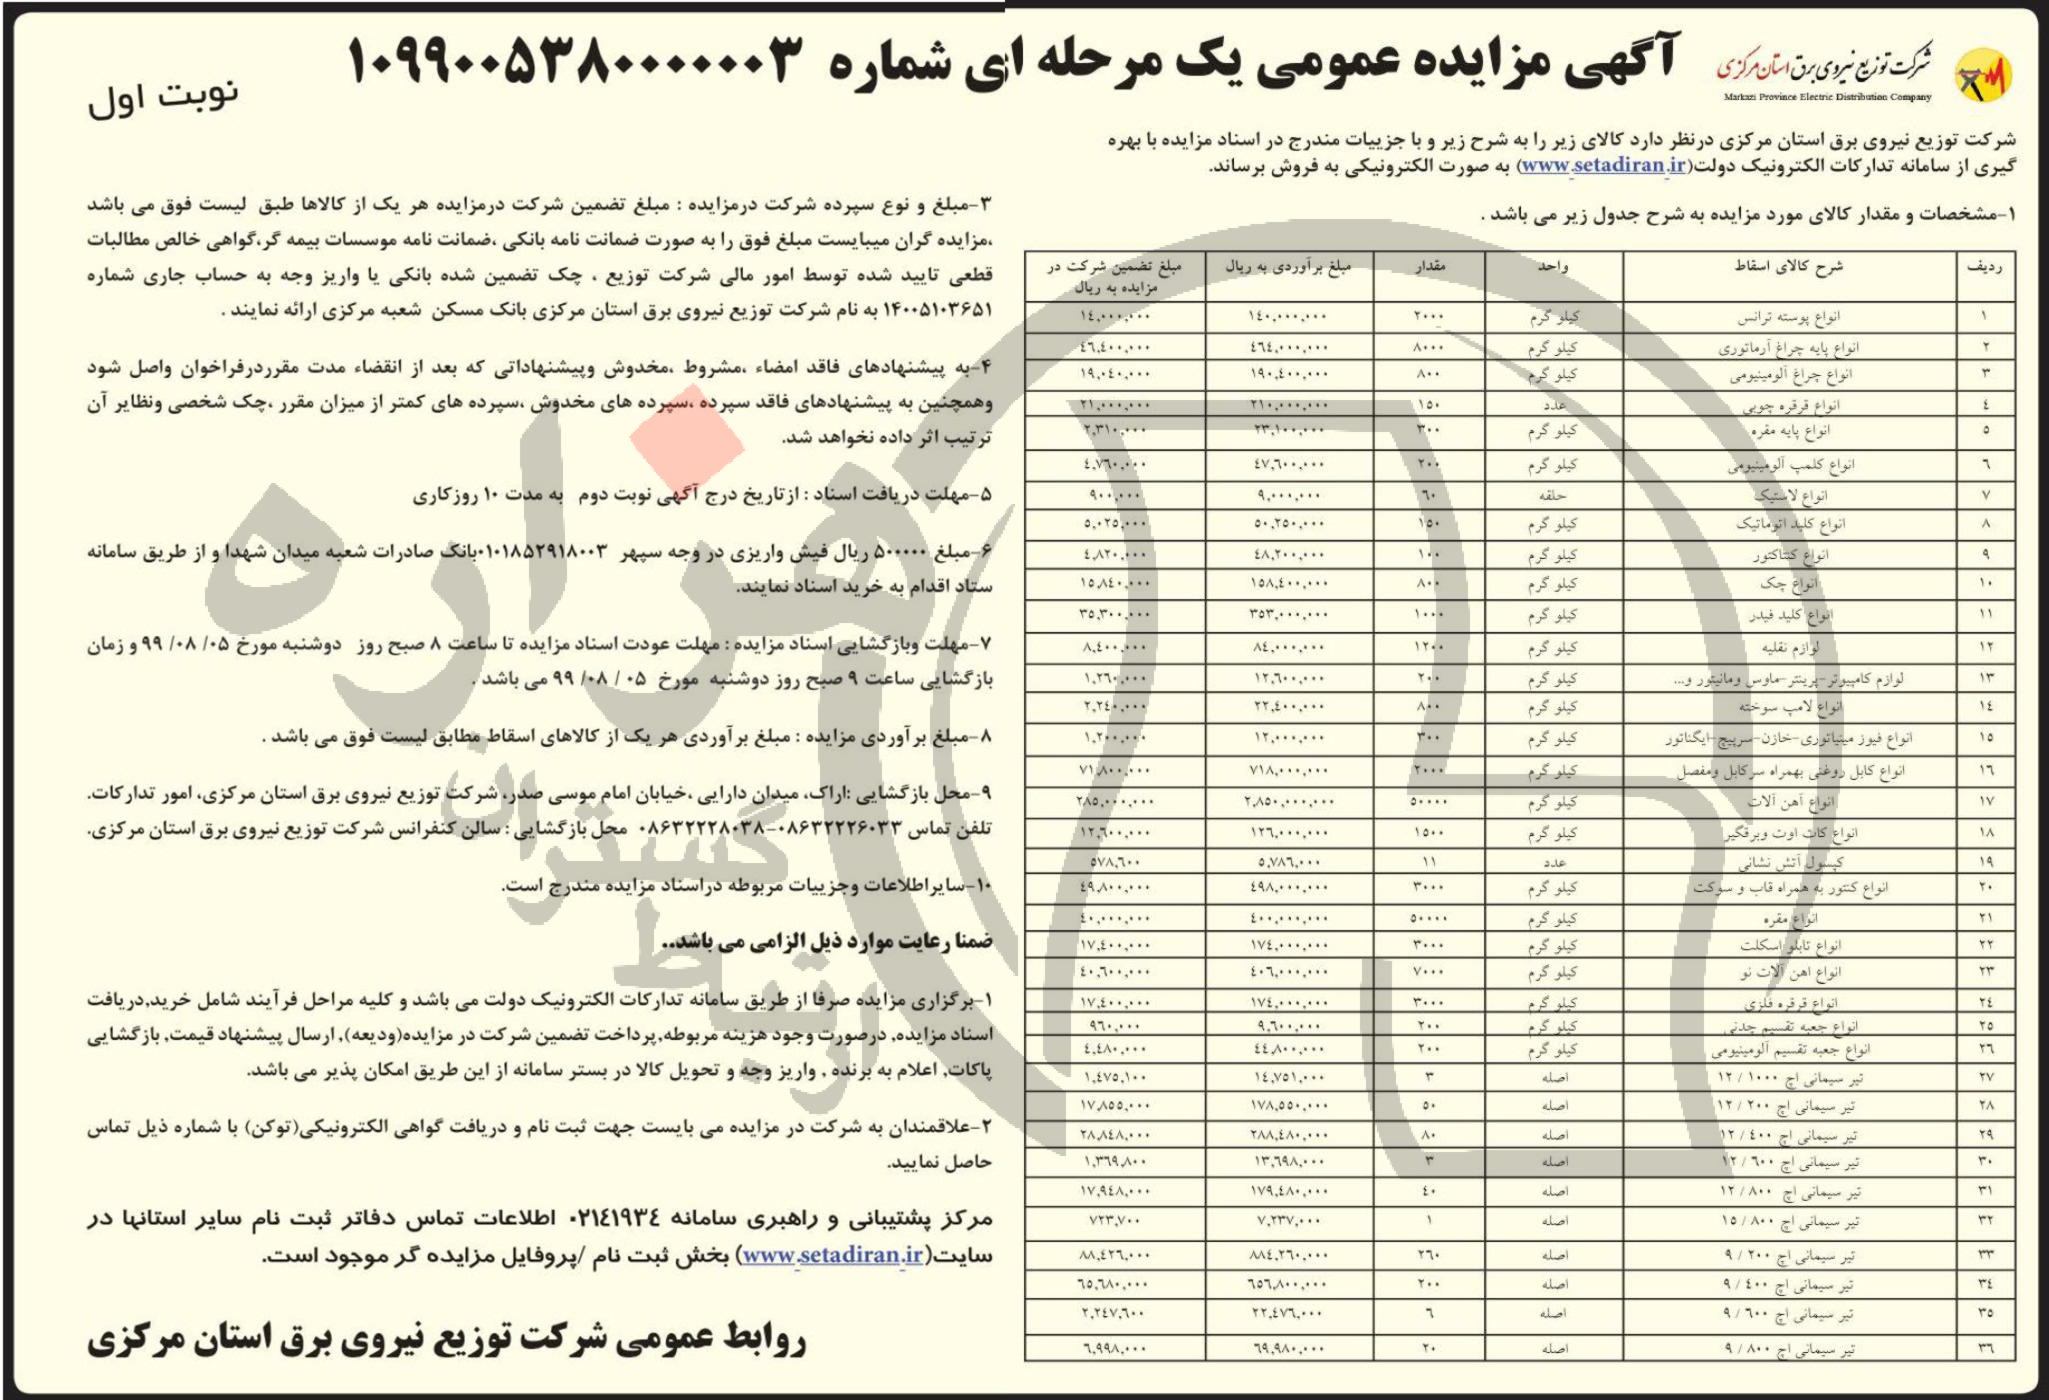 شرکت توزیع نیروی برق استان مرکزی
Markazi Province Electric Distribution Company
آگهی مزایده عمومی یک مرحله ای شماره ۱۰۹۹۰۰۵۳۸۰۰۰۰۰۰۳
نوبت اول
شرکت توزیع نیروی برق استان مرکزی درنظر دارد کالای زیر را به شرح زیر و با جزییات مندرج در اسناد مزایده با بهره
گیری از سامانه تدارکات الکترونیک دولت(www.setadiran.ir) به صورت الکترونیکی به فروش برساند.
۱-مشخصات و مقدار کالای مورد مزایده به شرح جدول زیر می باشد .
ردیف شرح کالای اسقاط واحد مقدار مبلغ برآوردی به ریال مبلغ تضمین شرکت در مزایده به ریال
۱ انواع پوسته ترانس کیلو گرم ۲۰۰۰ ۱٤۰,۰۰۰,۰۰۰ ۱٤,۰۰۰,۰۰۰
۲ انواع پایه چراغ آرماتوری کیلو گرم ۸۰۰۰ ٤٦٤,۰۰۰,۰۰۰ ٤٦,٤۰۰,۰۰۰
۳ انواع چراغ آلومینیومی کیلو گرم ۸۰۰ ۱۹۰,٤۰۰,۰۰۰ ۱۹,۰٤۰,۰۰۰
٤ انواع قرقره چوبی عدد ۱٥۰ ۲۱۰,۰۰۰,۰۰۰ ۲۱,۰۰۰,۰۰۰
٥ انواع پایه مقره کیلو گرم ۳۰۰ ۲۳,۱۰۰,۰۰۰ ۲,۳۱۰,۰۰۰
٦ انواع کلمپ آلومینیومی کیلو گرم ۲۰۰ ٤۷,٦۰۰,۰۰۰ ٤,۷٦۰,۰۰۰
۷ انواع لاستیک حلقه ٦۰ ۹,۰۰۰,۰۰۰ ۹۰۰,۰۰۰
۸ انواع کلید اتوماتیک کیلو گرم ۱٥۰ ٥۰,۲٥۰,۰۰۰ ٥,۰۲٥,۰۰۰
۹ انواع کنتاکتور کیلو گرم ۱۰۰ ٤۸,۲۰۰,۰۰۰ ٤,۸۲۰,۰۰۰
۱۰ انواع جک کیلو گرم ۸۰۰ ۱٥۸,٤۰۰,۰۰۰ ۱٥,۸٤۰,۰۰۰
۱۱ انواع کلید فیدر کیلو گرم ۱۰۰۰ ۳٥۳,۰۰۰,۰۰۰ ۳٥,۳۰۰,۰۰۰
۱۲ لوازم نقلیه کیلو گرم ۱۲۰۰ ۸٤,۰۰۰,۰۰۰ ۸,٤۰۰,۰۰۰
۱۳ لوازم کامپیوتر-پرینتر-ماوس ومانیتور و... کیلو گرم ۲۰۰ ۱۲,٦۰۰,۰۰۰ ۱,۲٦۰,۰۰۰
۱٤ انواع لامپ سوخته کیلو گرم ۸۰۰ ۲۲,٤۰۰,۰۰۰ ۲,۲٤۰,۰۰۰
۱٥ انواع فیوز مینیاتوری-خازن-سرپیچ-ایگناتور کیلو گرم ۳۰۰ ۱۲,۰۰۰,۰۰۰ ۱,۲۰۰,۰۰۰
۱٦ انواع کابل روغنی بهمراه سرکابل ومفصل کیلو گرم ۲۰۰۰ ۷۱۸,۰۰۰,۰۰۰ ۷۱,۸۰۰,۰۰۰
۱۷ انواع آهن آلات کیلو گرم ٥۰۰۰۰ ۲,۸٥۰,۰۰۰,۰۰۰ ۲۸٥,۰۰۰,۰۰۰
۱۸ انواع کات اوت وبرقگیر کیلو گرم ۱٥۰۰ ۱۲٦,۰۰۰,۰۰۰ ۱۲,٦۰۰,۰۰۰
۱۹ کپسول آتش نشانی عدد ۱۱ ٥,۷۸٦,۰۰۰ ٥۷۸,٦۰۰
۲۰ انواع کنتور به همراه قاب و سوکت کیلو گرم ۳۰۰۰ ٤۹۸,۰۰۰,۰۰۰ ٤۹,۸۰۰,۰۰۰
۲۱ انواع مقره کیلو گرم ٥۰۰۰۰ ٤۰۰,۰۰۰,۰۰۰ ٤۰,۰۰۰,۰۰۰
۲۲ انواع تابلو اسکلت کیلو گرم ۳۰۰۰ ۱۷٤,۰۰۰,۰۰۰ ۱۷,٤۰۰,۰۰۰
۲۳ انواع اهن آلات نو کیلو گرم ۷۰۰۰ ٤۰٦,۰۰۰,۰۰۰ ٤۰,٦۰۰,۰۰۰
۲٤ انواع قرقره فلزی کیلو گرم ۳۰۰۰ ۱۷٤,۰۰۰,۰۰۰ ۱۷,٤۰۰,۰۰۰
۲٥ انواع جعبه تقسیم چدنی کیلو گرم ۲۰۰ ۹,٦۰۰,۰۰۰ ۹٦۰,۰۰۰
۲٦ انواع جعبه تقسیم آلومینیومی کیلو گرم ۲۰۰ ٤٤,۸۰۰,۰۰۰ ٤,٤۸۰,۰۰۰
۲۷ تیر سیمانی اچ ۱۰۰۰ / ۱۲ اصله ۳ ۱٤,۷٥۱,۰۰۰ ۱,٤۷٥,۱۰۰
۲۸ تیر سیمانی اچ ۲۰۰ / ۱۲ اصله ٥۰ ۱۷۸,٥٥۰,۰۰۰ ۱۷,۸٥٥,۰۰۰
۲۹ تیر سیمانی اچ ٤۰۰ / ۱۲ اصله ۸۰ ۲۸۸,٤۸۰,۰۰۰ ۲۸,۸٤۸,۰۰۰
۳۰ تیر سیمانی اچ ٦۰۰ / ۱۲ اصله ۳ ۱۳,٦۹۸,۰۰۰ ۱,۳٦۹,۸۰۰
۳۱ تیر سیمانی اچ ۸۰۰ / ۱۲ اصله ٤۰ ۱۷۹,٤۸۰,۰۰۰ ۱۷,۹٤۸,۰۰۰
۳۲ تیر سیمانی اچ ۸۰۰ / ۱٥ اصله ۱ ۷,۲۳۷,۰۰۰ ۷۲۳,۷۰۰
۳۳ تیر سیمانی اچ ۲۰۰ / ۹ اصله ۲٦۰ ۸۸٤,۲٦۰,۰۰۰ ۸۸,٤۲٦,۰۰۰
۳٤ تیر سیمانی اچ ٤۰۰ / ۹ اصله ۲۰۰ ٦٥٦,۸۰۰,۰۰۰ ٦٥,٦۸۰,۰۰۰
۳٥ تیر سیمانی اچ ٦۰۰ / ۹ اصله ٦ ۲۲,٤۷٦,۰۰۰ ۲,۲٤۷,٦۰۰
۳٦ تیر سیمانی اچ ۸۰۰ / ۹ اصله ۲۰ ٦۹,۹۸۰,۰۰۰ ٦,۹۹۸,۰۰۰
۳-مبلغ و نوع سپرده شرکت درمزایده : مبلغ تضمین شرکت درمزایده هر یک از کالاها طبق لیست فوق می باشد
،مزایده گران میبایست مبلغ فوق را به صورت ضمانت نامه بانکی ،ضمانت نامه موسسات بیمه گر،گواهی خالص مطالبات
قطعی تایید شده توسط امور مالی شرکت توزیع ، چک تضمین شده بانکی یا واریز وجه به حساب جاری شماره
۱۴۰۰۵۱۰۳۶۵۱ به نام شرکت توزیع نیروی برق استان مرکزی بانک مسکن شعبه مرکزی ارائه نمایند .
۴-به پیشنهادهای فاقد امضاء ،مشروط ،مخدوش وپیشنهاداتی که بعد از انقضاء مدت مقرردرفراخوان واصل شود
وهمچنین به پیشنهادهای فاقد سپرده ،سپرده های مخدوش ،سپرده های کمتر از میزان مقرر ،چک شخصی ونظایر آن
ترتیب اثر داده نخواهد شد.
۵-مهلت دریافت اسناد : ازتاریخ درج آگهی نوبت دوم به مدت ۱۰ روزکاری
۶-مبلغ ۵۰۰۰۰۰ ریال فیش واریزی در وجه سپهر ۰۱۰۱۸۵۲۹۱۸۰۰۳بانک صادرات شعبه میدان شهدا و از طریق سامانه
ستاد اقدام به خرید اسناد نمایند.
۷-مهلت وبازگشایی اسناد مزایده : مهلت عودت اسناد مزایده تا ساعت ۸ صبح روز دوشنبه مورخ ۰۵/ ۰۸/ ۹۹ و زمان
بازگشایی ساعت ۹ صبح روز دوشنبه مورخ ۰۵ / ۰۸/ ۹۹ می باشد .
۸-مبلغ برآوردی مزایده : مبلغ برآوردی هر یک از کالاهای اسقاط مطابق لیست فوق می باشد .
۹-محل بازگشایی :اراک، میدان دارایی ،خیابان امام موسی صدر، شرکت توزیع نیروی برق استان مرکزی، امور تدارکات.
تلفن تماس ۰۸۶۳۲۲۲۶۰۳۳-۰۸۶۳۲۲۲۸۰۳۸ محل بازگشایی : سالن کنفرانس شرکت توزیع نیروی برق استان مرکزی.
۱۰-سایراطلاعات وجزییات مربوطه دراسناد مزایده مندرج است.
ضمنا رعایت موارد ذیل الزامی می باشد..
۱-برگزاری مزایده صرفا از طریق سامانه تدارکات الکترونیک دولت می باشد و کلیه مراحل فرآیند شامل خرید,دریافت
اسناد مزایده, درصورت وجود هزینه مربوطه,پرداخت تضمین شرکت در مزایده(ودیعه), ارسال پیشنهاد قیمت, بازگشایی
پاکات, اعلام به برنده , واریز وجه و تحویل کالا در بستر سامانه از این طریق امکان پذیر می باشد.
۲-علاقمندان به شرکت در مزایده می بایست جهت ثبت نام و دریافت گواهی الکترونیکی(توکن) با شماره ذیل تماس
حاصل نمایید.
مرکز پشتیبانی و راهبری سامانه ۰۲۱٤۱۹۳٤ اطلاعات تماس دفاتر ثبت نام سایر استانها در
سایت(www.setadiran.ir) بخش ثبت نام /پروفایل مزایده گر موجود است.
روابط عمومی شرکت توزیع نیروی برق استان مرکزی
هزاره
ارتباط گستران